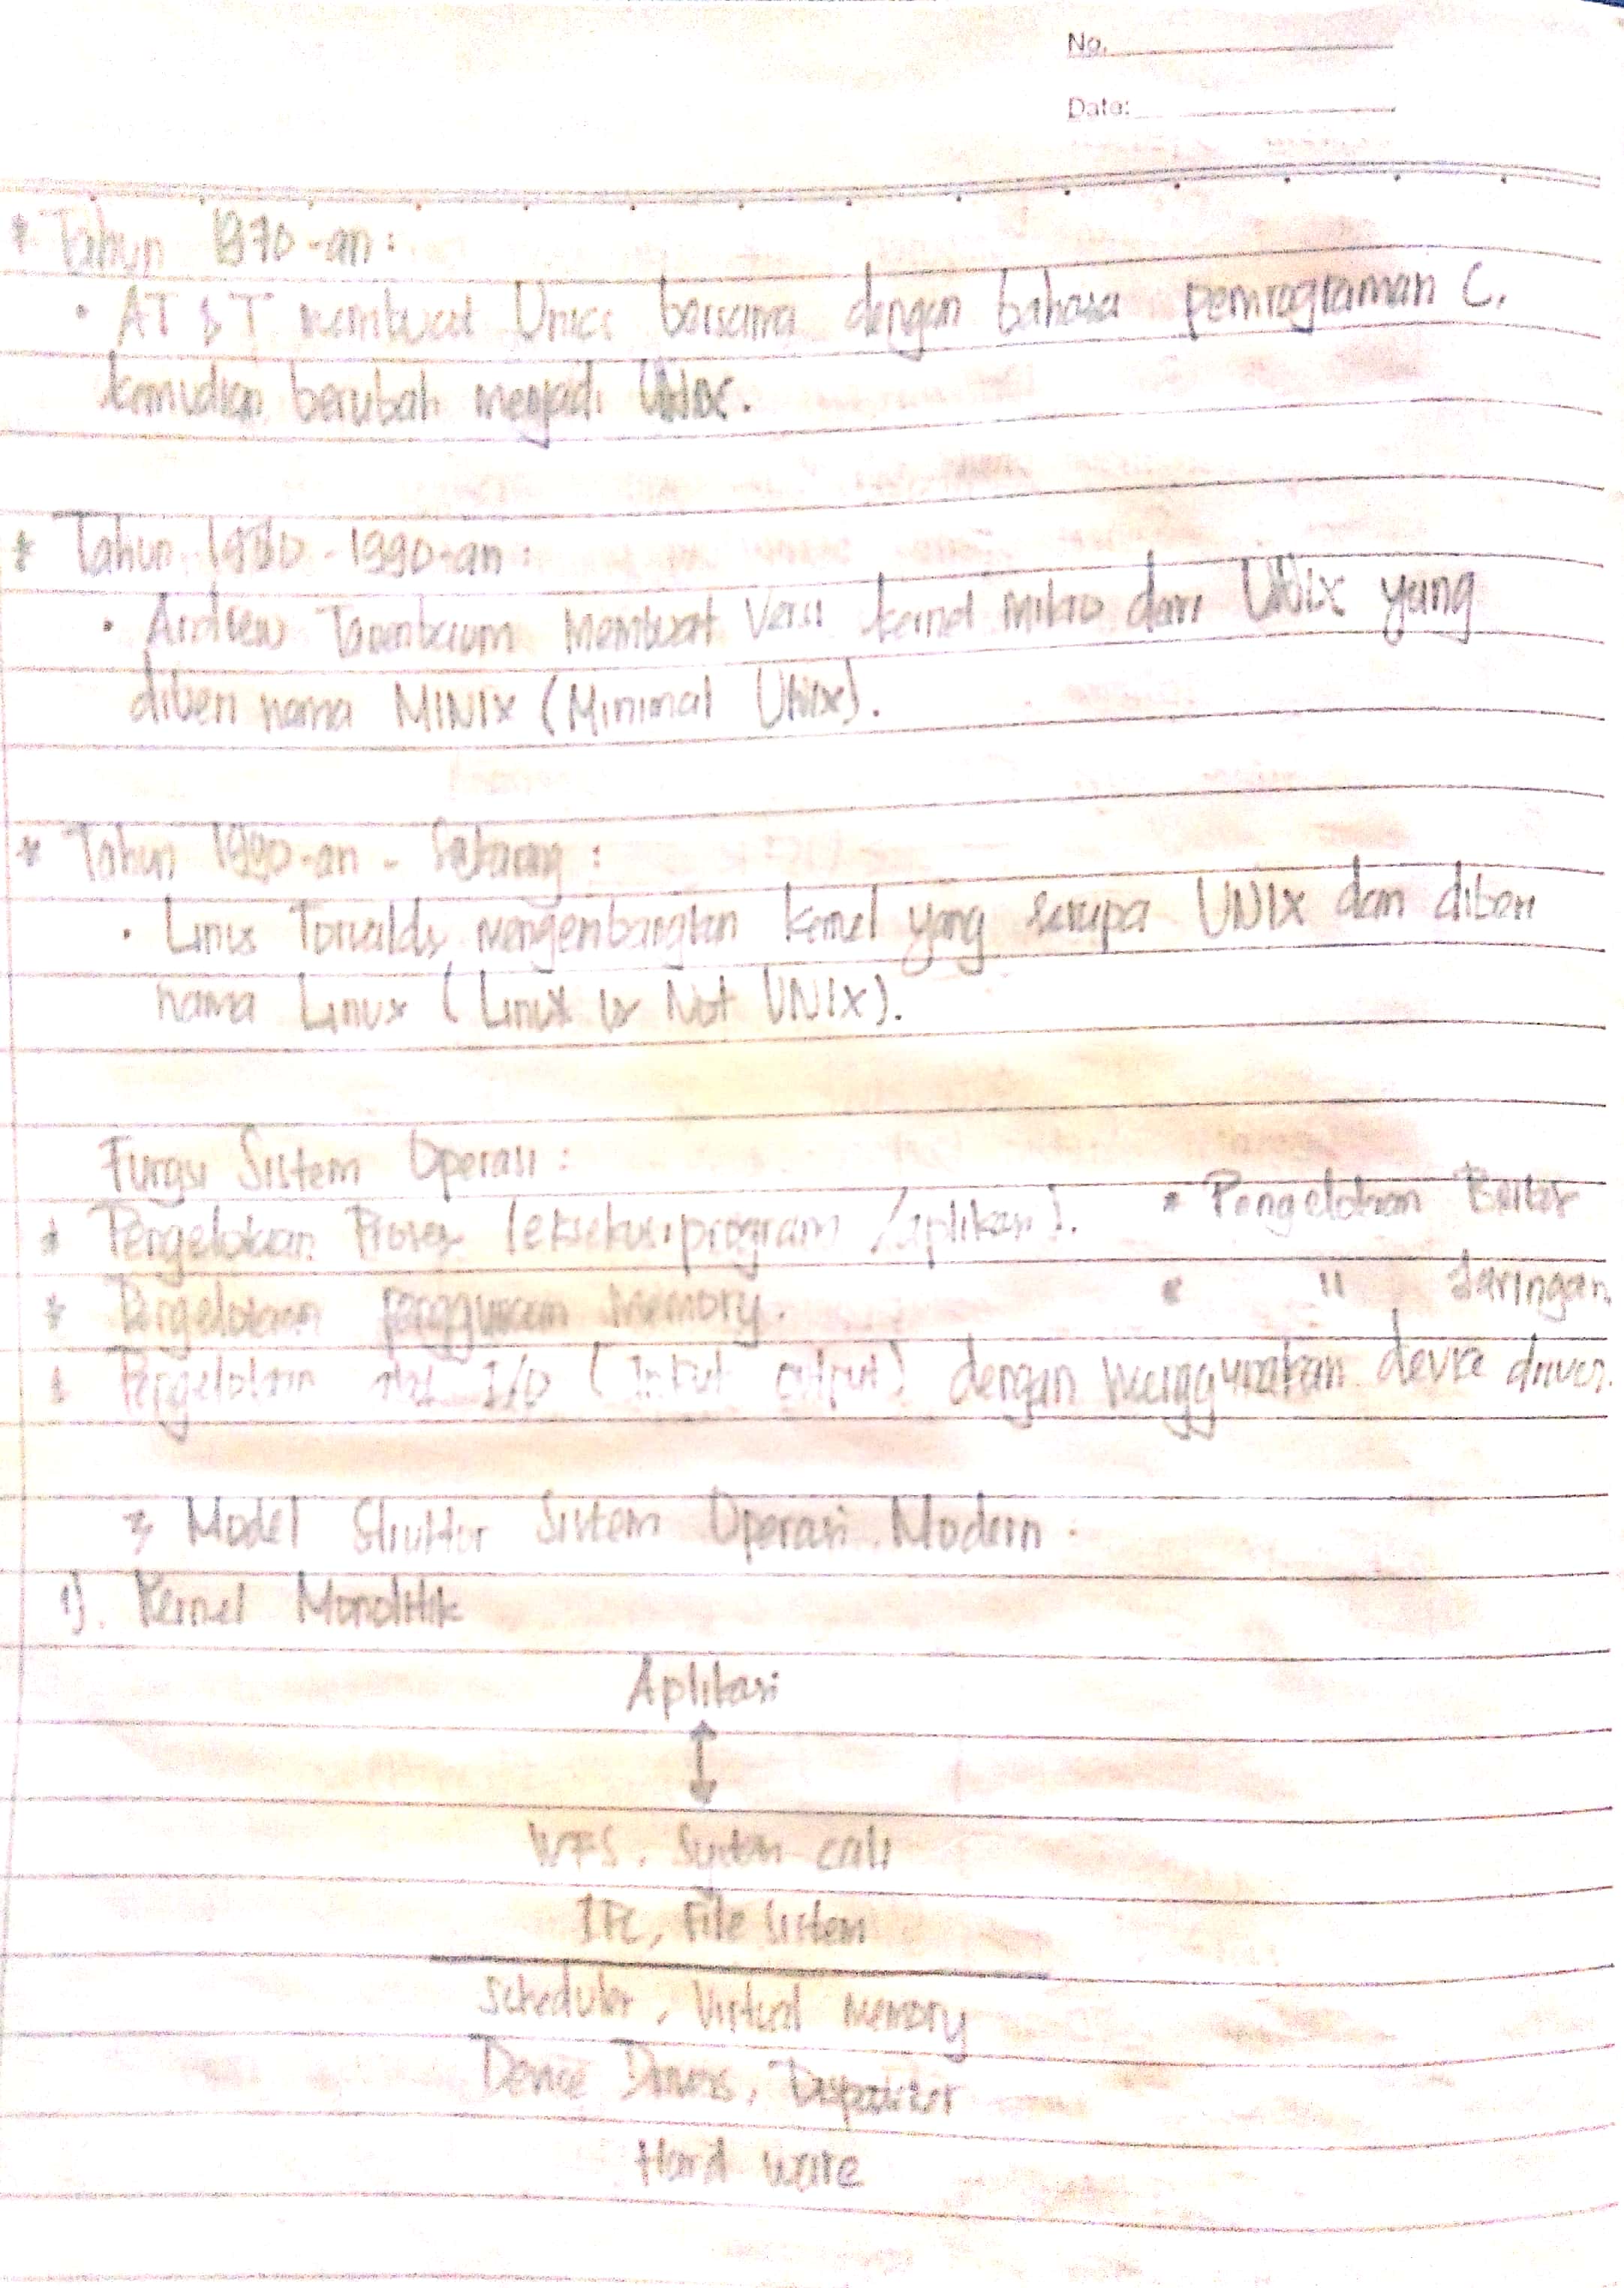 No.
Date:
* Tahun 1970-an:
• AT & T membuat Unics bersama dengan bahasa pemrograman C,
kemudian berubah menjadi UNIX.
* Tahun 1980-1990-an:
• Andrew Tanenbaum membuat versi kernel mikro dari UNIX yang
diberi nama MINIX (Minimal UNIX).
* Tahun 1990-an - Sekarang:
• Linus Torvalds mengembangkan kernel yang serupa UNIX dan diberi
nama Linux (Linux is Not UNIX).
Fungsi Sistem Operasi:
* Pengelolaan Proses (eksekusi program / aplikasi). * Pengelolaan Berkas
* Pengelolaan penggunaan Memory. * " Jaringan.
* Pengelolaan alat I/O (Input output) dengan menggunakan device driver.
Model Struktur Sistem Operasi Modern.
1). Kernel Monolitik
Aplikasi
VFS, System call
IPC, File Sistem
Scheduler, Virtual Memory
Device Drivers, Dispatcher
Hard ware